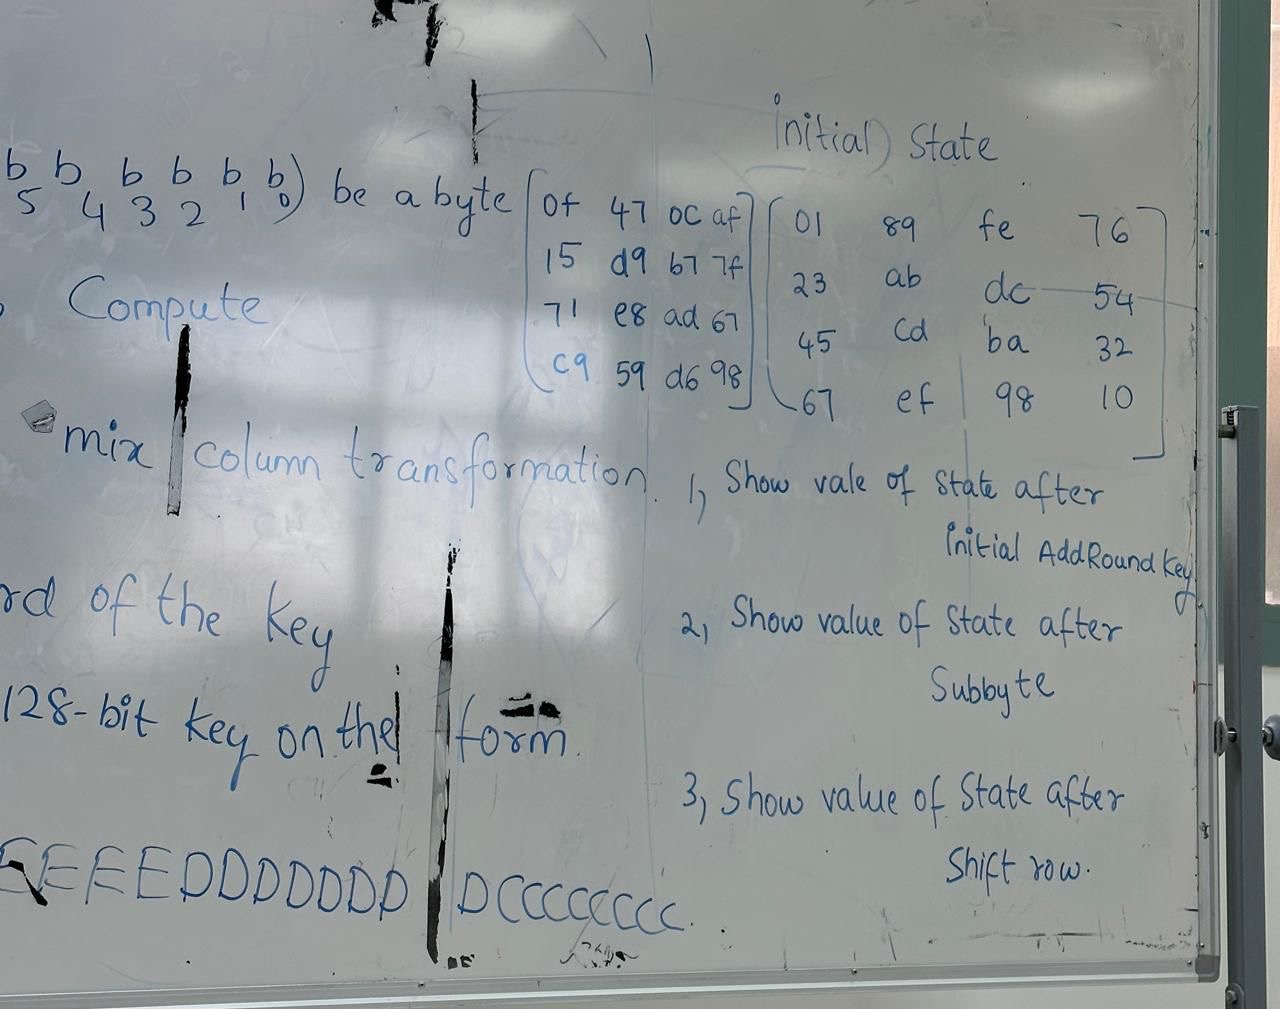 initial State
b b b b b b) be a byte
5 4 3 2 1 0
[0f 47 0c af]
15 d9 b7 7f
71 e8 ad 67
c9 59 d6 98
[01 89 fe 76]
23 ab dc 54
45 cd ba 32
67 ef 98 10
Compute
mix column transformation.
rd of the key
128-bit key on the form.
EEEEDDDDDDD DCCCCCCCC.
1, Show vale of State after
initial AddRound key
2, Show value of State after
Subbyte
3, Show value of State after
Shift row.